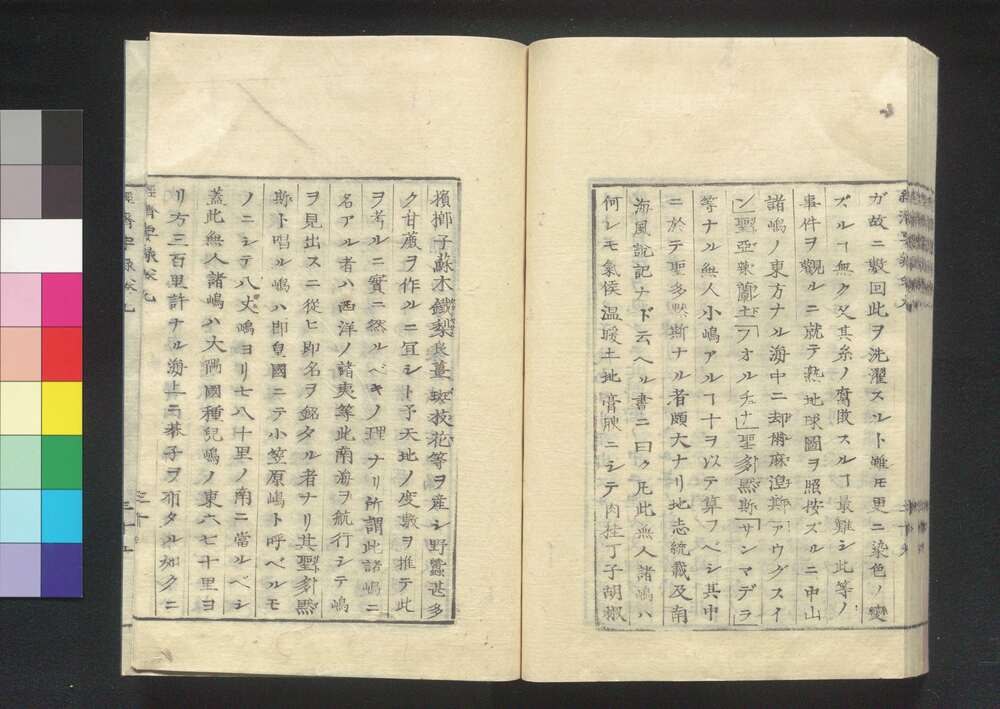 ガ故ニ數回此ヲ洗濯スレト雖モ更ニ染色ノ變
ズルヿ無ク又其糸ノ腐敗スルヿ最難シ此等ノ
事件ヲ觀ルニ就テ熟地球圖ヲ照按ズルニ中山
諸嶋ノ東方ナル海中ニ却爾麻湼斯アウグスイ
ン聖亞蘭土フオルチナ聖多黙斯サンマデラ
等ナル無人小嶋アルヿ十ヲ以テ算フベシ其中
ニ於テ聖多黙斯ナル者頗大ナリ地志統載及南
海風説記ナド云ヘル書ニ曰ク凡此無人諸嶋ハ
何レモ氣候温暖土地膏腴ニシテ肉桂丁子胡椒
檳榔子蘇木鐵梨良薑蚊技花等ヲ産シ野蠶甚多
ク甘蔗ヲ作ルニ冝シト予天地ノ度數ヲ推テ此
ヲ考ルニ實ニ然ルベキノ理ナリ所謂此諸嶋ニ
名アル者ハ西洋ノ諸夷等此南海ヲ航行シテ嶋
ヲ見出スニ從ヒ即名ヲ銘タル者ナリ其聖多黙
斯ト唱ル嶋ハ即皇國ニテ小笠原嶋ト呼ベルモ
ノニシテ八丈嶋ヨリ七八十里ノ南ニ當ルベシ
蓋此無人諸嶋ハ大隅國種兒嶋ノ東六七十里ヨ
リ方三百里許ナル海上ニ碁子ヲ布タル如クニ